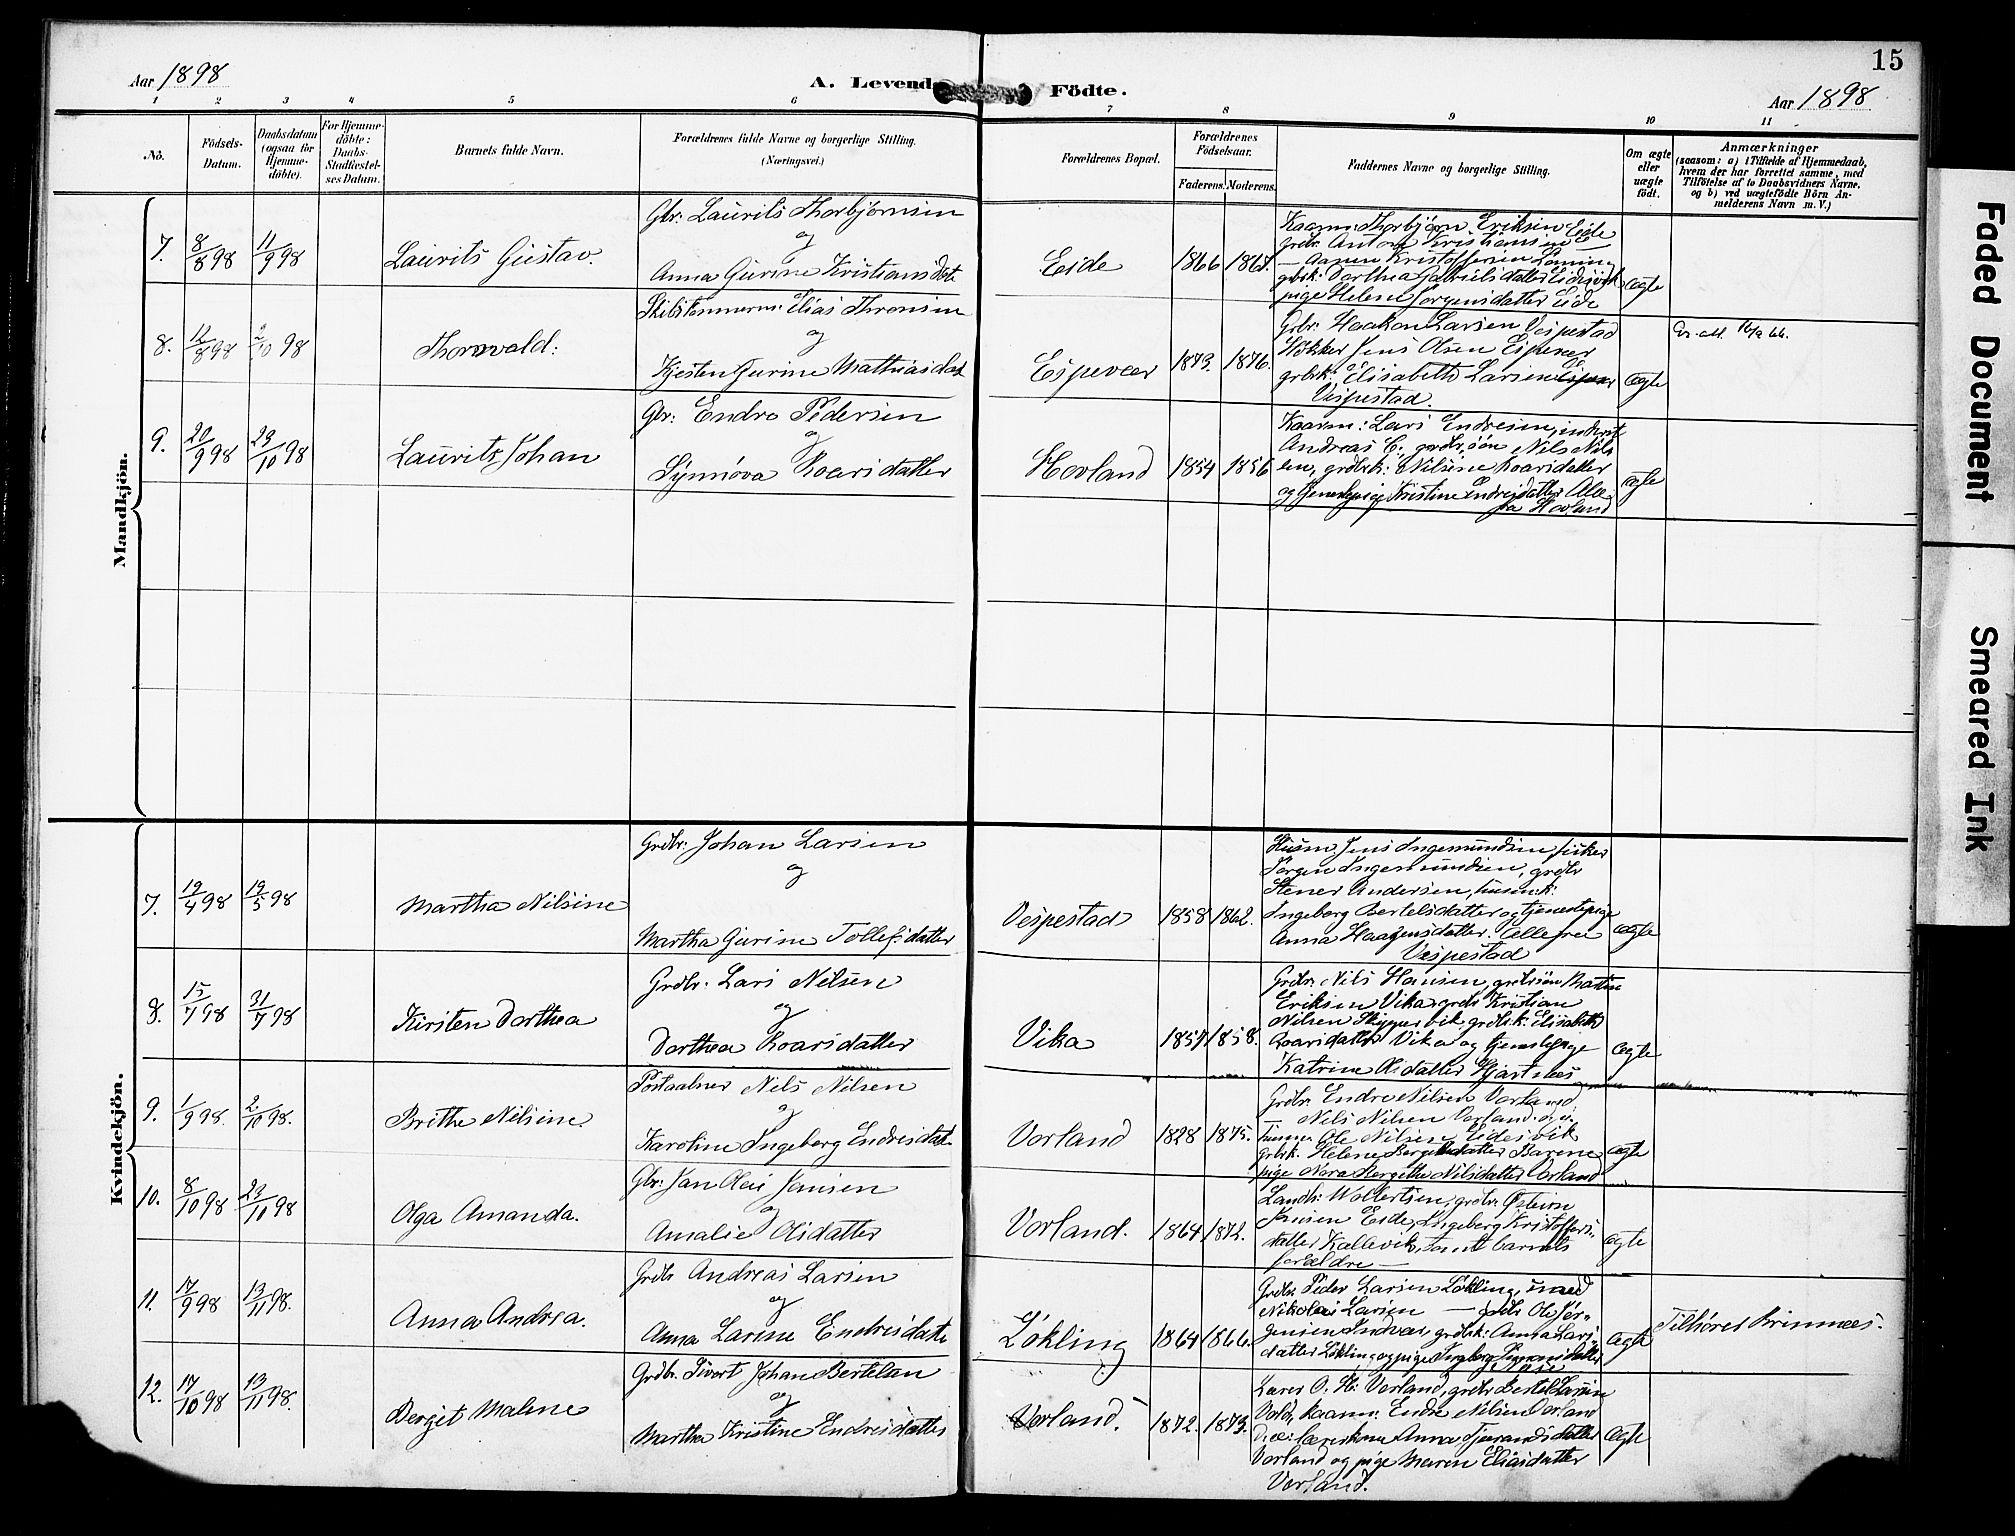 15
Aar 1898
A. Levende Födte.
Aar 1898
1 2 3 4 5 6 7 8 9 10 11
No.
Födsels-Datum.
Daabsdatum (ogsaa för Hjemme-döbte).
For Hjemme-döbte: Daabs-Stadfæstel-ses Datum.
Barnets fulde Navn.
Forældrenes fulde Navne og borgerlige Stilling. (Næringsvei.)
Forældrenes Bopæl.
Forældrenes Födselsaar.
Faderens. Moderens.
Faddernes Navne og borgerlige Stilling.
Om ægte eller uægte födt.
Anmærkninger
(saasom: a) i Tilfælde af Hjemmedaab,
hvem der har forrettet samme, med
Tilföielse af to Daabsvidners Navne,
og b) ved uægtefödte Börn An-
melderens Navn m. V.)
Mandkjön.
7. 8/8 98 11/9 98 Laurits Gustav.
Gbr: Laurits Thorbjørnsen
og
Anna Gurine Kristiansdatt
Eide 1866
Kaarm: Thorbjørn Eriksen Eide
grdb. Anton Kristiansen E—
— Aamen Kristoffersen
gbrk: Dorthea Gabrielsdatter Eidesvik
pige Helene Jørgensdatter Eide
ægte
8. 12/8 98 2/10 98 Thorvald:
Skibstømmerm: Elias Thronsen
og
Kjesten Gurine Mathiasdat
Espevær 1873. 1876.
Gbr: Haakon Larsen Vespestad
Jens Olsen Espevær
grbk: Elisabeth Larsen
Vespestad.
ægte
9. 20/9 98 23/10 98 Laurits Johan
Gbr: Endre Pedersen
og
Synnøva Roarsdatter
Hovland 1854 1856
Kaarm: Lars Endresen,
Andreas E. grdbr.søn Nils Nils
en, grdbrk: Nilsine Roarsdatter
og tjenestepige Kristine Endresdatter Alle
fra Hovland
ægte
Kvindekjön.
7. 19/4 98 19/5 98 Martha Nilsine
Grdbr: Johan Larsen
og
Martha Gurine Tollefsdatter
Vespestad 1858 1862.
Husm. Jens Ingemundsen, fisker
Jørgen Ingemundsen, grdbr
Stener Andersen, husm.k:
Ingeborg Bertelsdatter og tjenestepige
Anna Haagensdatter. Alle fra
Vespestad
ægte
8. 15/7 98 31/7 98 Kirsten Dorthea
Grdbr. Lars Nilsen
og
Dorthea Roarsdatter
Vika 1857 1858.
Grdbr. Nils Hansen, grdbrsøn Martin
Eriksen Vika, grdb Kristian
Nilsen Skippervik, grdbr.k: Elisabeth
Roarsdatter Vika og tjenestepige
Katrine Olsdatter Hjartnæs
ægte
9. 1/9 98. 2/10 98. Brithe Nilsine.
Postaabner Nils Nilsen
og
Karoline Ingeborg Endresdat.
Vorland 1828 1875.
Grdbr. Endre Nilsen Vorland
Nils Nilsen Vorland.
tømmer. Ole Nilsen Eidesvik
grbk. Helene Bergithedatter Barene
pige Nora Bergithe Nilsdatter Vorland
ægte
10. 8/10 98 23/10 98 Olga Amanda.
Gbr: Jan Olai Jansen
og
Amalie Olsdatter
Vorland. 1864. 1872.
Landh: Wollertsen, grdbr Østein
Jensen Eide, Ingeborg Kristoffers-
datter Kallevik, samt barnets
forældre —
ægte
11. 17/9 98 13/11 98. Anna Andrea.
Grdb Andreas Larsen
og
Anna Larine Endresdatt
Løkling 1864 1866.
Grdbr. Peder Larsen Løkling, smed
Nikolai Larsen — grdb Ole Jør-
gensen Indvær, grdbrk: Anna Lars
datter Løkling og pige Ingeborg
ægte
Tilhører Bremnæs.
12. 17/10 98 13/11 98. Berget Malene
Grdbr. Sivert Johan Bertelsen
og
Martha Kristine Endresdatter
Vorland. 1872. 1873.
Lærer O. H. Vorland, grdbr Bertel Larsen
Vold, kaarm: Endre Nilsen Vorland
lærerkone Anna Tjerandsdatter
Vorland og pige Maren Eliasdatter
Vorland.
ægte
Faded Document
Smeared Ink